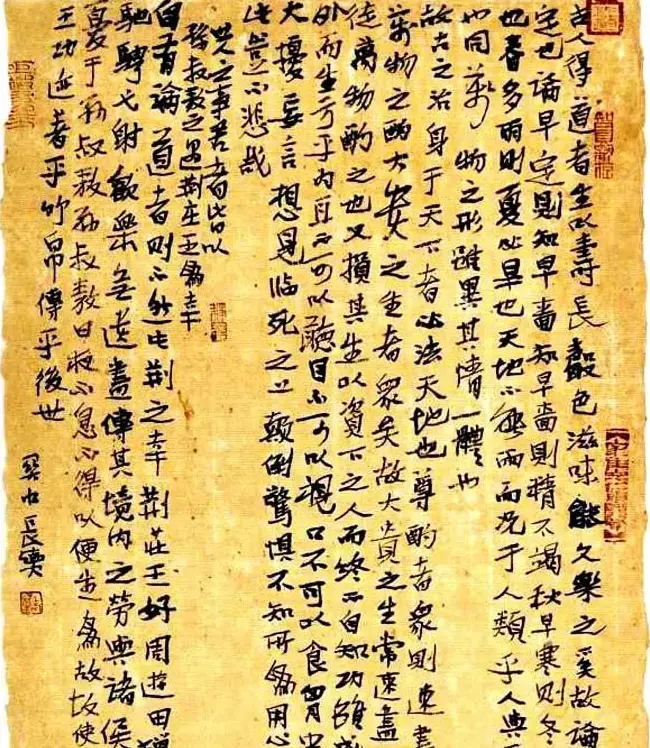 古人得道者生以壽長聲色滋味能久樂之奚故論
定也論早定則知早嗇知早嗇則精不竭秋早寒則冬
也春多雨則夏必旱也天地不能兩而況于人類乎人與
也同萬物之形雖異其情一體也
故古之治身于天下者必法天地也尊酌者眾則速盡
萬物之酌大貴之生者眾矣故大貴之生常速盡
徒萬物酌之也又損其生以資下之人而終不自知功雖成
外而生虧乎內耳不可以聽目不可以視口不可以食胸中
大擾妄言想見臨死之上顛倒驚懼不知所為用心
此豈不悲哉
世之事君者皆以
孫叔敖之遇荊莊王為幸
自有論道者則不然此荊之幸荊莊王好周遊田獵
馳騁弋射歡樂無遺盡傳其境內之勞與諸侯
憂于孫叔敖孫叔敖日夜不息不得以便生為故故使
王功跡著乎竹帛傳乎後世